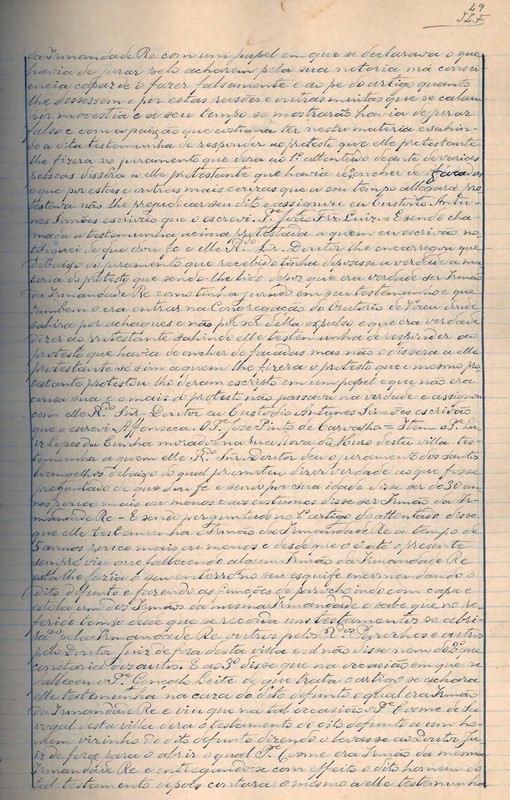 49
da Irmandade Re com um papel em que se declarava o que
havia de jurar pelo acharem pela sua notoria má consci-
encia capaz de o fazer falsamente e ao pe do artigo quanto
lhe dissessem e por estas rasões e outras muitas que se calam
por modestia e a seu tempo se mostrarão havia de jurar
falso e com a paixão que costuma ter nesta materia e sahin-
do a dita testemunha de responder ao protesto que elle protestante
lhe fizera no juramento que dera ao 1º attentado deante de varias
pessoas dissera a elle protestante que havia de encher de facadas
e que por estas e outras mais couzas que a seu tempo allegará pro-
testava não lhe prejudicar seu dito e assignou eu Custodio Antu-
nes Simões escrivão que o escrevi. Pe João Frz Luiz. = E sendo cha-
mada a testemunha acima protestada a quem eu escrivão no-
tifiquei de que dou fe e elle Rdo Snr. Doutor lhe encarregou que
debaixo do juramento que recebido tinha depozesse a verdade a ma-
teria do protesto que sendo lhe lido depoz que era verdade ser Irmão
da Irmandade Re como tinha jurado em seu testemunho e que
tambem o era entrar na Congregação do Oratorio de Vizeu donde
sahira por achaques e não por ser della expulso e que era verdade
dizer ao protestante sahindo elle testemunha de responder ao
protesto que havia de encher de facadas mas não o dissera a elle
protestante só sim a quem lhe fizera o protesto que o mesmo pro-
testante protestou lhe deram escripto em um papel e que não era
cousa sua e o mais do protesto não passava na verdade e assignou
com elle Rdo Snr. Doutor eu Custodio Antunes Simões escrivão
que o escrevi. Affonseca. O Pe José Pinto de Carvalho = Item o Pe Lu-
iz Lopes da Cunha morador na Rua Nova do Souto desta villa tes-
temunha a quem elle Rdo Snr. Doutor deu o juramento dos Santos
Evangelhos debaixo do qual prometteu dizer verdade ao que fosse
perguntado de que dou fe e sendo por sua idade disse ser de 30 an-
nos pouco mais ou menos e aos costumes disse ser Irmão da Ir-
mandade Re - E sendo perguntado no 1º artigo do attentado disse
que elle testemunha é Irmão da Irmandade Re a tempo de
5 annos pouco mais ou menos e desde que o é até o presente
sempre viu que fallecendo algum Irmão da Irmandade Re
esta lhe fazia o seu enterro no seu esquife encommendando o
dito defunto e fazendo as funções de parocho indo com capa e
estola um dos Irmãos da mesma Irmandade e sabe que no re-
ferido tempo desde que se recorda uns testamentos se abri-
ram pela Irmandade Re, outros pelos Rdos Parochos e outros
pelo Doutor juiz de fora desta villa e al não disse nem do 2º que
constaria dos autos. E ao 3º disse que na occasião em que se
falleceu o Pe Gonçalo Leite de que trata o artigo se achara
elle testemunha na caza do dito defunto o qual era Irmão
da Irmandade Re e viu que na tal occasião o Pe Cosme de
vogal desta villa dera o testamento do dito defunto a um ho-
mem vizinho do dito defunto dizendo o levasse ao Doutor ju-
iz de fora para o abrir o qual Pe Cosme era Irmão da mesma
Irmandade Re e entregando-se com effeito o dito homem do
tal testamento depois contara o mesmo a elle testemunha